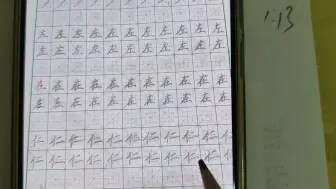 1:13
左左左左左左左左左左
左左左左左左左左左左
在在在在在在在在在在
在在在在在在在在在在
仁仁仁仁仁仁仁仁仁仁
仁仁仁仁仁仁仁仁仁仁